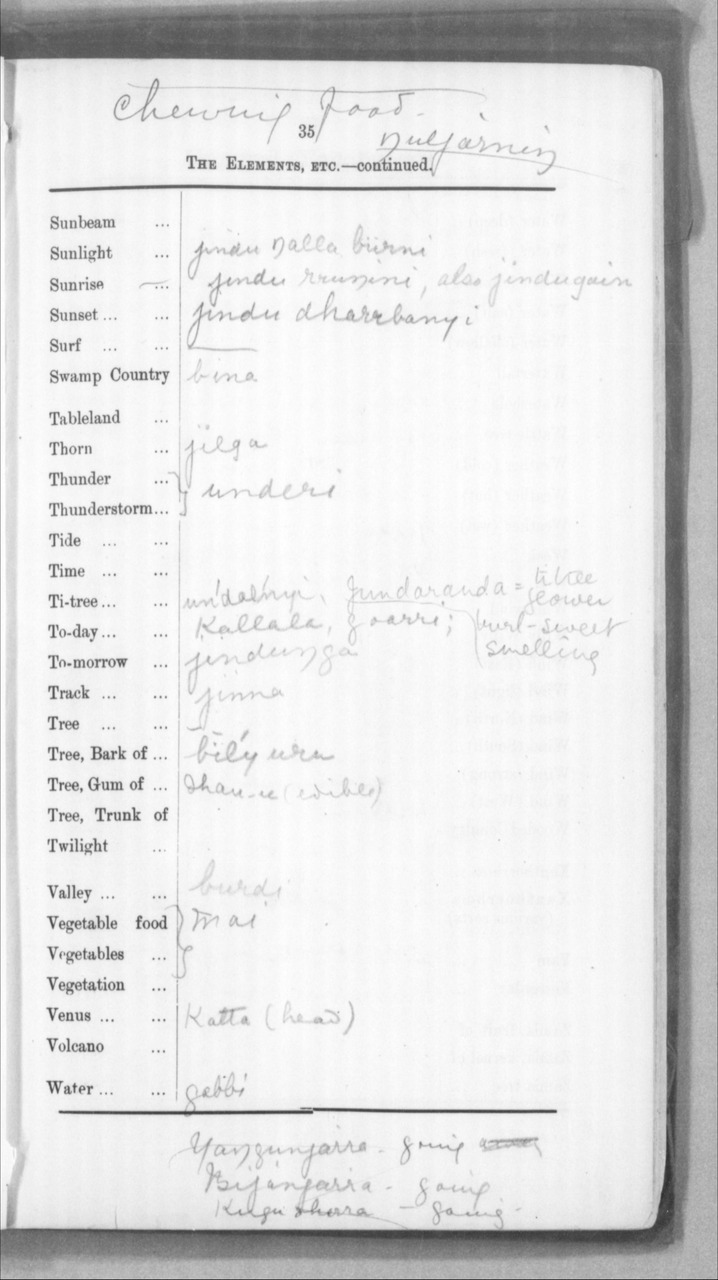 Chewing food -
35
ngulyarnin
THE ELEMENTS, ETC.—continued.
Sunbeam ...
Sunlight ... jindu ngalla burni
Sunrise ... jindu rrungini, also jindugain
Sunset ... ... jindu dharrbanyi
Surf ... ...
Swamp Country bina
Tableland ...
Thorn ... jilga
Thunder ... } underi
Thunderstorm...
Tide ... ...
Time ... ...
Ti-tree ... ... Jundaranda = ti tree flower
To-day ... ... Kallala, goarri; burl-sweet smelling
To-morrow ... jindunga
Track ... ... jinna
Tree ... ... —
Tree, Bark of ... bilyura
Tree, Gum of ... (edible)
Tree, Trunk of
Twilight ...
Valley ... ... burdi
Vegetable food } mai
Vegetables ...
Vegetation ...
Venus ... ... Katta (head)
Volcano ...
Water ... ... gabbi
Yangunjarra - going
Bijanjarra - going
- going -